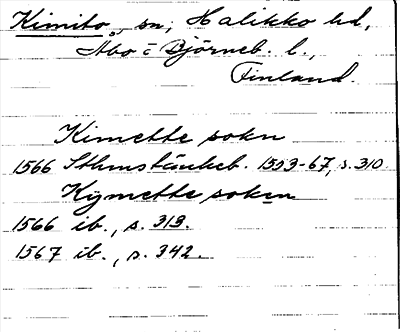 Kimito, sn, Halikko hd,
Åbo o Björneb. l.,
Finland.
Kimette sokn
1566 Sthmstänkeb. 1553-67, s. 310.
Kijmette soken
1566 ib., s. 313.
1567 ib., s. 342.